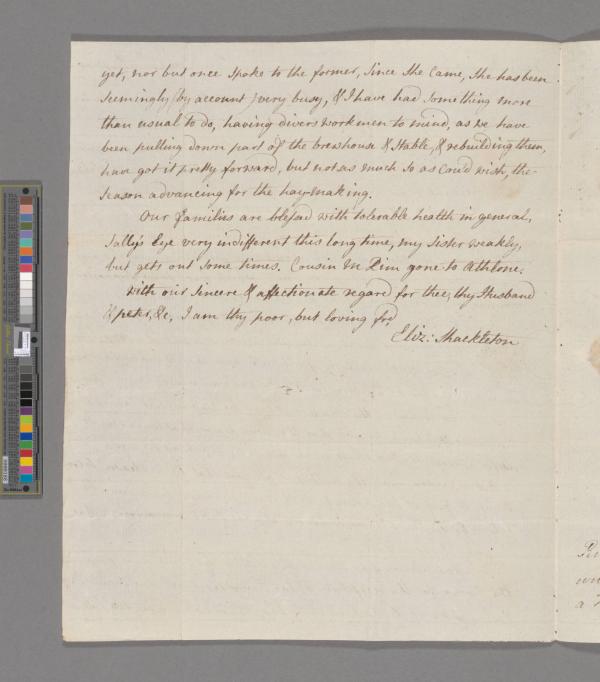 yet, nor but once spoke to the former, since she came, she has been
seemingly (by account) very busy, & I have had something more
than usual to do, having divers workmen to mind, as we have
been pulling down part of the brewhouse & stable, & rebuilding them,
have got it pretty forward, but not as much so as could wish, the
season advancing for the hay-making.
Our families are blessed with tolerable health in general,
Sally's Eye very indifferent this long time, my sister weakly,
but gets out some times. Cousin M gone to Athlone.
with our sincere & affectionate regard for thee, thy Husband
& peter, &c, I am thy poor, but loving frd
Eliz: Shackleton
a